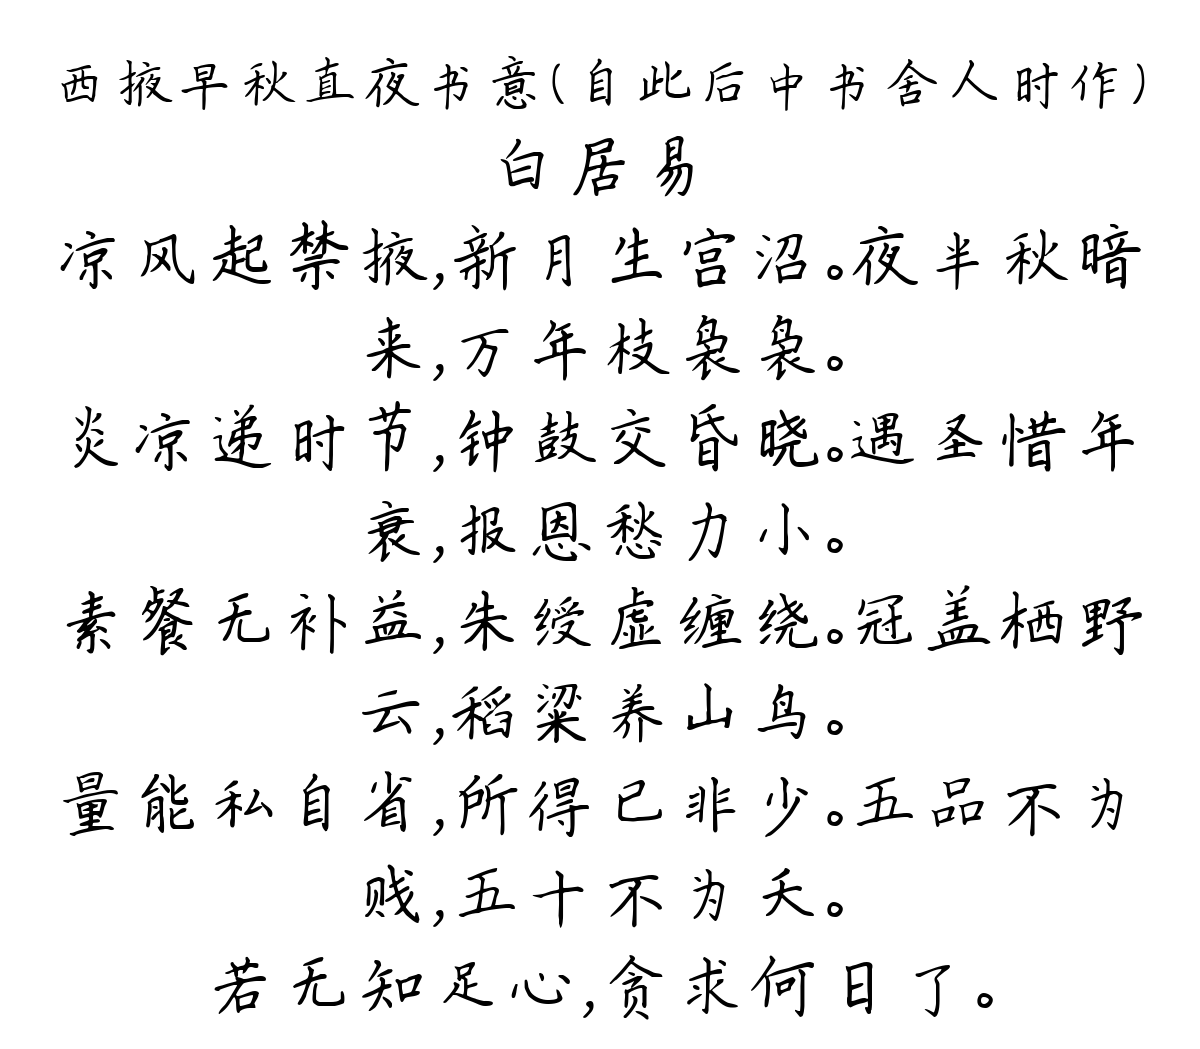 西掖早秋直夜书意(自此后中书舍人时作)
白居易
凉风起禁掖,新月生宫沼。夜半秋暗
来,万年枝袅袅。
炎凉递时节,钟鼓交昏晓。遇圣惜年
衰,报恩愁力小。
素餐无补益,朱绶虚缠绕。冠盖栖野
云,稻粱养山鸟。
量能私自省,所得已非少。五品不为
贱,五十不为夭。
若无知足心,贪求何日了。